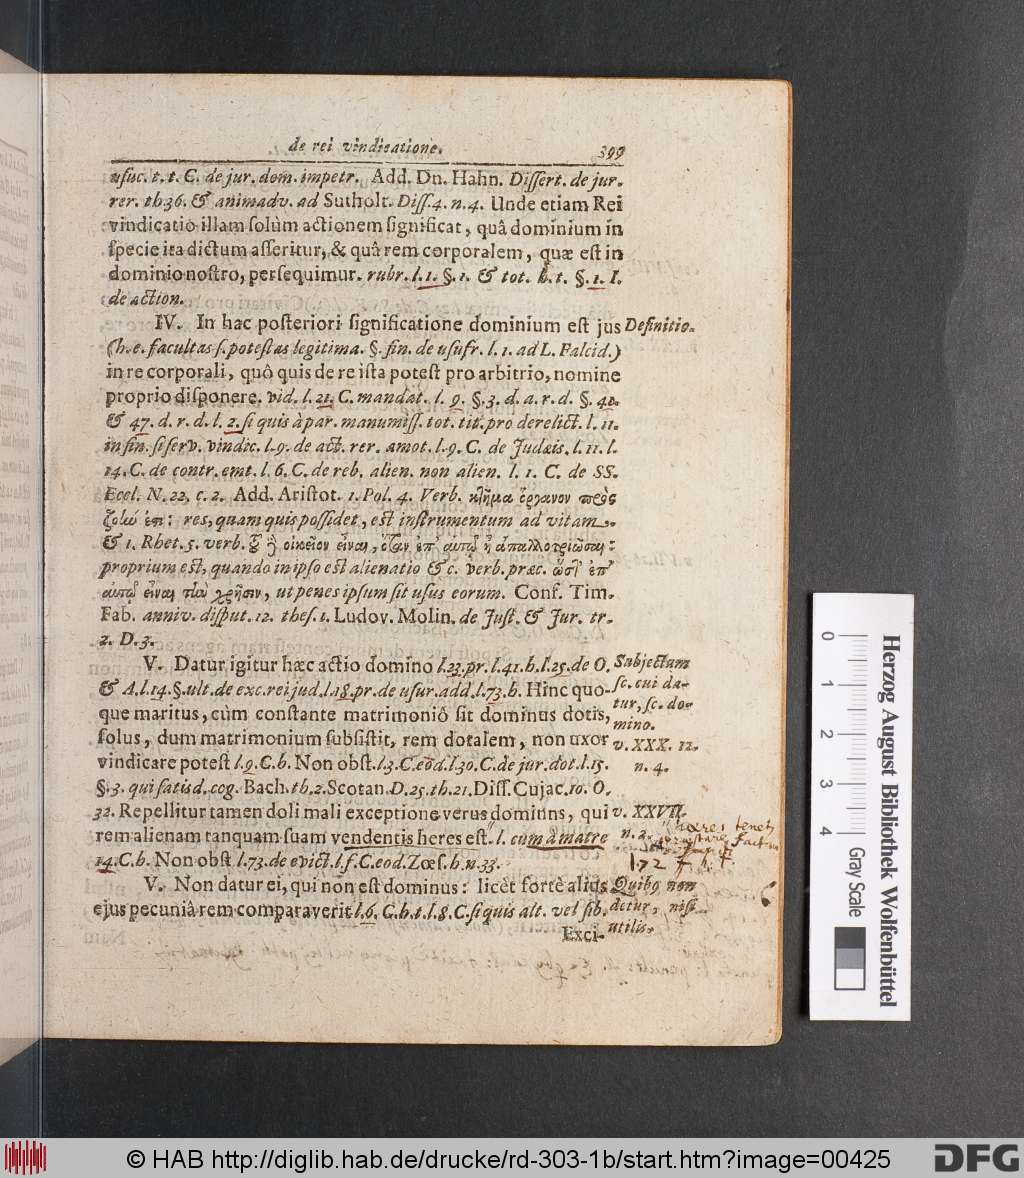 de rei vindicatione. 399
usuc. t. t. C. de jur. dom. impetr. Add. Dn. Hahn. Dissert. de jur.
rer. th 36. & animadv. ad Sutholt. Diss. 4. n. 4. Unde etiam Rei
vindicatio illam solùm actionem significat, quâ dominium in
specie ita dictum asseritur, & quâ rem corporalem, quæ est in
dominio nostro, persequimur. rubr. l. 1. §. 1. & tot. h. t. §. 1. I.
de action.
IV. In hac posteriori significatione dominium est jus Definitio.
(h. e. facultas s. potestas legitima. §. fin. de usufr. l. 1. ad L. Falcid.)
in re corporali, quô quis de re ista potest pro arbitrio, nomine
proprio disponere. vid. l. 21. C. mandat. l. 9. §. 3. d. a. r. d. §. 40.
& 47. d. r. d. l. 2. si quis à par. manumiss. tot. tit. pro derelict. l. 11.
in fin. si serv. vindic. l. 9. de act. rer. amot. l. 9. C. de Judæis. l. 11. l.
14. C. de contr. emt. l. 6. C. de reb. alien. non alien. l. 1. C. de SS.
Eccl. N. 22, c. 2. Add. Aristot. 1. Pol. 4. Verb. κτῆμα ὄργανον πρὸς
ζωὼ ἐςι: res, quam quis possidet, est instrumentum ad vitam.
& 1. Rhet. 5. verb. οἰκεῖον εἶναι, ὅταν ἐπ' αὐτῷ ᾖ ἀπαλλοτριῶσαι:
proprium est, quando in ipso est alienatio & c. verb. præc. ὥστ' ἐπ'
αὐτῷ εἶναι τὼ χρῆσιν, ut penes ipsum sit usus eorum. Conf. Tim.
Fab. anniv. disput. 12. thes. 1. Ludov. Molin. de Just. & Jur. tr.
2. D. 3.
V. Datur igitur hæc actio domino l. 23. pr. l. 41. h. l. 25. de O. Subjectum
& A. l. 14. §. ult. de exc. rei jud. l. 18. pr. de usur. add. l. 73. h. Hinc quo- sc. cui da-
que maritus, cùm constante matrimoniô sit dominus dotis, tur, sc. do-
solus, dum matrimonium subsistit, rem dotalem, non uxor mino. v. XXX. 12.
vindicare potest l. 9. C. h. Non obst. l. 3. C. eod. l. 30. C. de jur. dot. l. 15. n. 4.
§. 3. qui satisd. cog. Bach. th. 2. Scotan. D. 25. th. 21. Diss. Cujac. 10. O.
32. Repellitur tamen doli mali exceptione verus dominus, qui v. XXVII.
rem alienam tanquam suam vendentis heres est l. cum à matre n. 2.
14. C. h. Non obst l. 73. de evict. l. f. C. eod. Zœs. h. n. 33.
V. Non datur ei, qui non est dominus: licèt fortè alius Quibq non
ejus pecuniâ rem comparaverit l. 6. C. h. t. l. 8. C. si quis alt. vel sib. detur, nisi
Exci- utilis.
Herzog August Bibliothek Wolfenbüttel
0 1 2 3 4
Gray Scale
© HAB http://diglib.hab.de/drucke/rd-303-1b/start.htm?image=00425
DFG